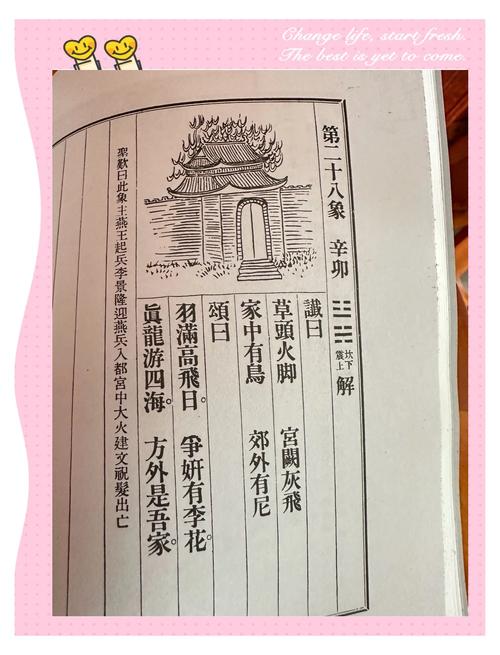 Change life, start fresh.
The best is yet to come.
第二十八象 辛卯
坎下
震上
解
讖曰
草頭火脚 宮闕灰飛
家中有鳥 郊外有尼
頌曰
羽滿高飛日。爭妍有李花。
眞龍游四海。方外是吾家。
聖歎曰此象主燕王起兵李景隆迎燕兵入都宮中大火建文祝髮出亡